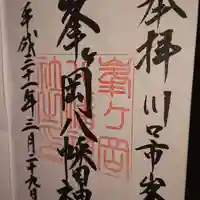 奉拝 川口市峯
峯ヶ岡八幡神
平成三十一年三月二十九日
峯ヶ岡